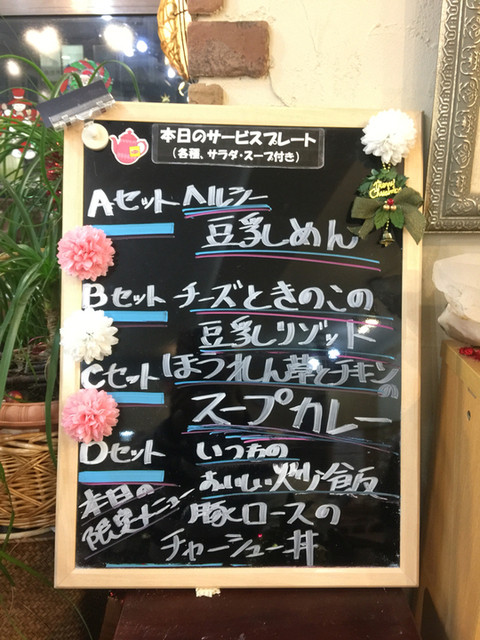 本日のサービスプレート
(各種、サラダ・スープ付き)
Aセット ヘルシー
豆乳しめん
Bセット チーズときのこの
豆乳しリゾット
Cセット ほうれん草とチキンの
スープカレー
Dセット いつもの
おいしい炒冷飯
本日の
限定メニュー
豚ロースの
チャーシュー丼